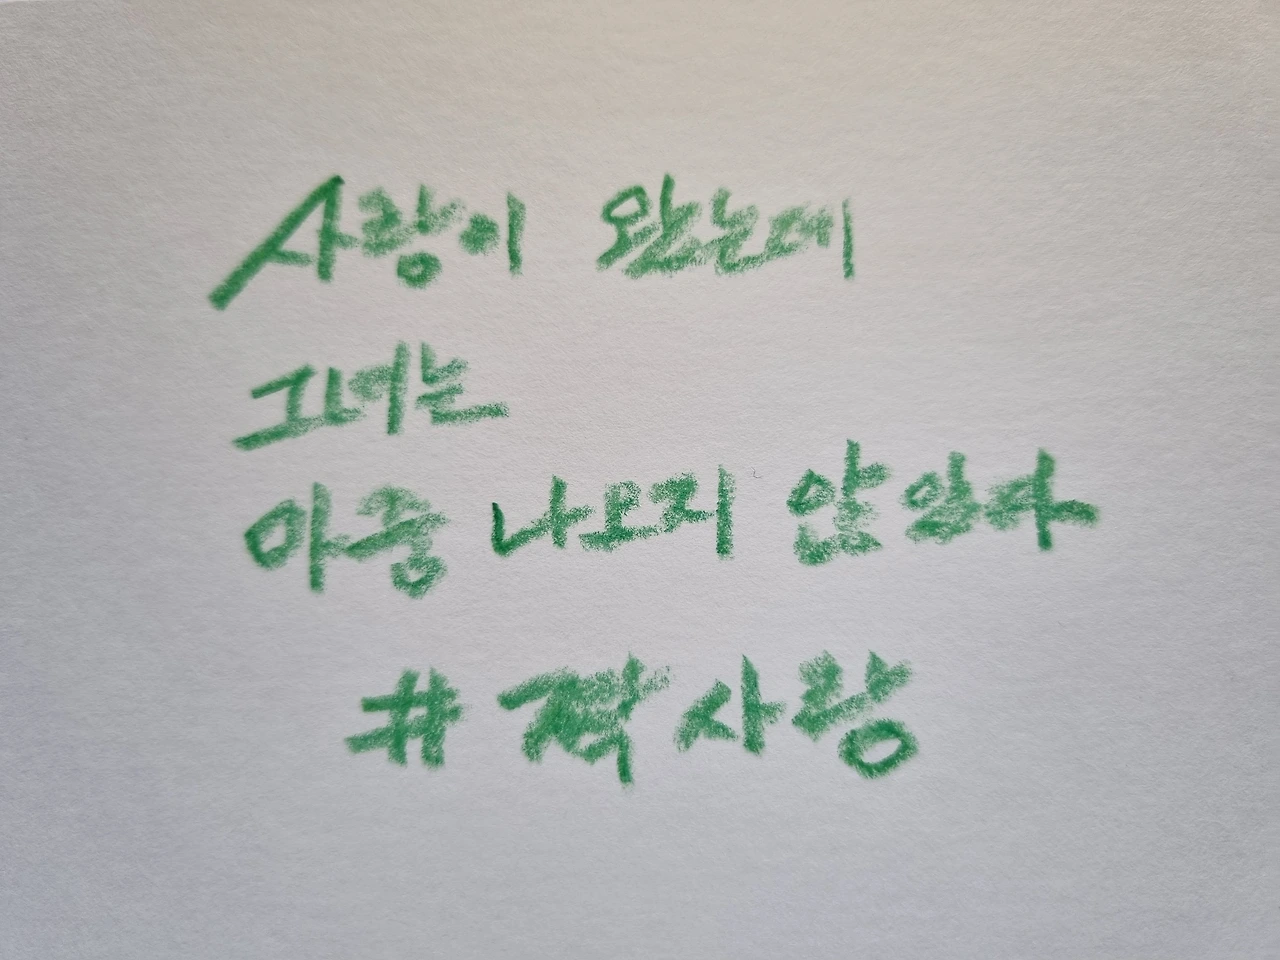 사랑이 왔는데
그녀는
마중 나오지 않았다
#짝사랑